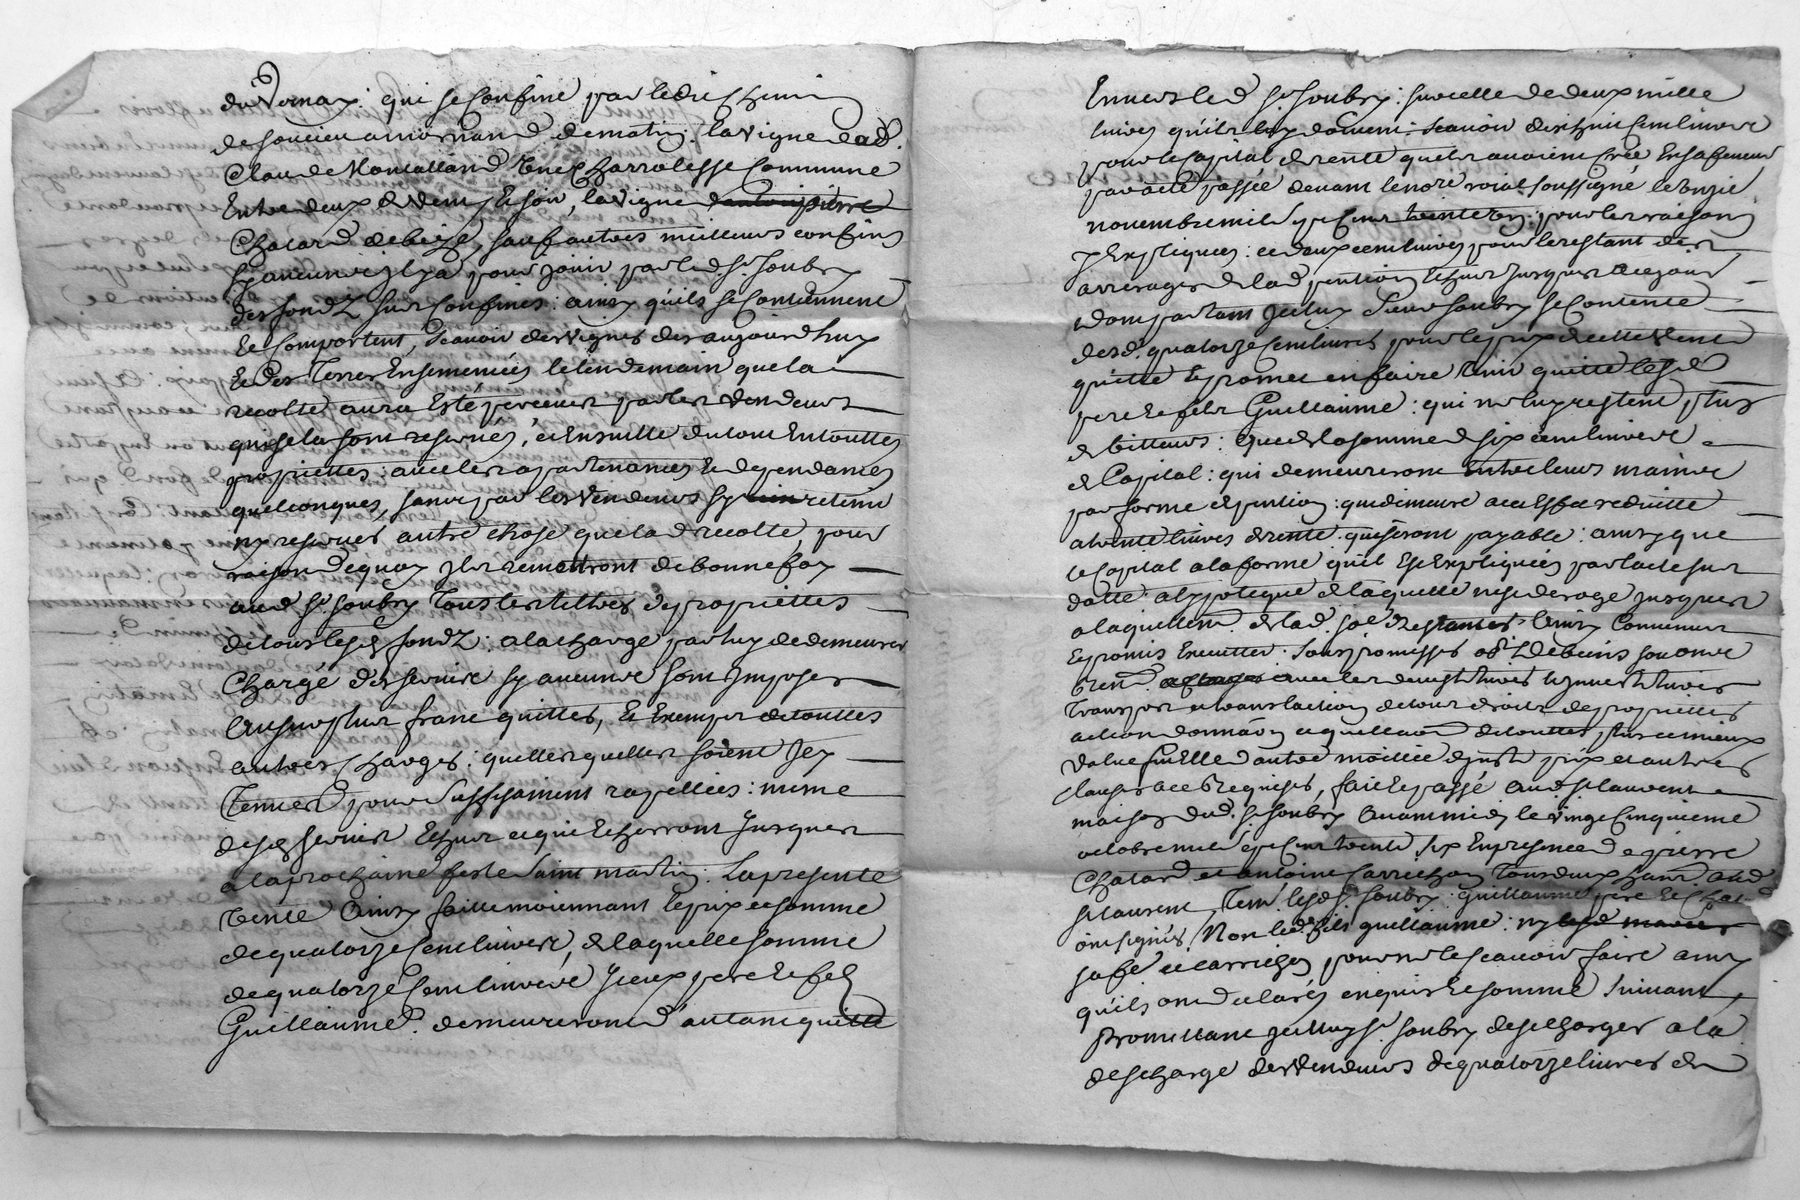 du Vernay: qui se confine par le dit chemin
de soucieu a mornand de matin. la vigne dud.
Claude Montalland terre Charrolesse Commune
Entre deux de vent Et soir, la vigne
Chatard de bize, sauf autres meilleurs confins
sy aucune il y a pour jouir par led. Sr. Soubry
des fondZ sus Confinés: ainsy qu'ils se Contiennent
Et Comportent, scavoir des vignes des aujourd'huy
Et des Terres Ensemencées le lendemain que la
recolte aura Esté perceue par les vendeurs
qui se la sont reservée, et Ensuitte du tout En touttes
proprietes: avec les apartenances Et dependances
quelconques, sans par les vendeurs sy retenir
ny reserver autre chose que lad recolte, pour
raison de quoy ils remettront de bonne foy
aud Sr. Soubry Tous les tiltres de proprietes
de tous lesd fondZ: a la charge par luy de demeurer
Chargé des servis sy aucuns sont Imposés
Au surplus franc quittes, Et Exempts de touttes
autres Charges: quelles quelles soient Icy
Tenues pour suffisament rapellées: meme
desd servis Echus et qui Echerront Jusques
a la prochaine feste Saint martin. La presente
vente Ainsy faitte moiennant le prix et somme
de quatorze Cent livres, de laquelle somme
de quatorze Cent livres Iceux pere et fils
Guillaume. demeureront d'autant quitte
Envers led Sr. Soubry: sur celle de deux mille
livres qu'ils luy doivent: scavoir dix huit Cent livres
pour le Capital de rente quils avoient Crée En sa faveur
par acte passée devant le nore roial soussigné le onzie
novembre mil sept Cent pour les raisons
y Expliquées: et deux cent livres pour le restant des
arrerages de lad pention Echus Jusques a ce jour
dont partant Icelluy Sieur Soubry se Contente
desd. quatorze Cent livres pour le prix de cette vente
quitte Et promet en faire tenir quitte lesd
pere Et fils Guillaume: qui ne luy restent plus
debitteurs: que de la somme de six cent livres
de Capital: qui demeureront Entre leurs mains
par forme de pention: que demeure a cet Effet reduitte
a trente livres de rente: que seront payable: ainsy que
le Capital a la forme qu'il Est Expliquée par l'acte sus
datté: a l'ypoteque de laquelle n'est deroge Jusques
a laquittem. de lad. so. Ainsy Convenu
Et promis Executter: sous promesses
avec les devestitures Et Investitures
Transport et translation de tout droits de proprietes
action et quittance de touttes plus et mieux
value fut Elle d'autre moitiée de juste prix et autres
clauses a ce Requises, fait Et passé aud St laurent
maison dud. Sr. Soubry avant midy le vingt Cinquieme
octobre mil sept Cent trente six En presence de pierre
Chatard et antoine Carrichon Tous deux
St laurent, Tem. lesd Sr. Soubry: guillaume pere Et Chatard
ont signés, Non led. fils guillaume: ny
et Carrichon pour ne le scavoir faire ainsy
qu'ils ont declarés enquis Et sommé suivant,
Promettant Icelluy Sr. Soubry de se charger a la
descharge des vendeurs de quatorze livres de